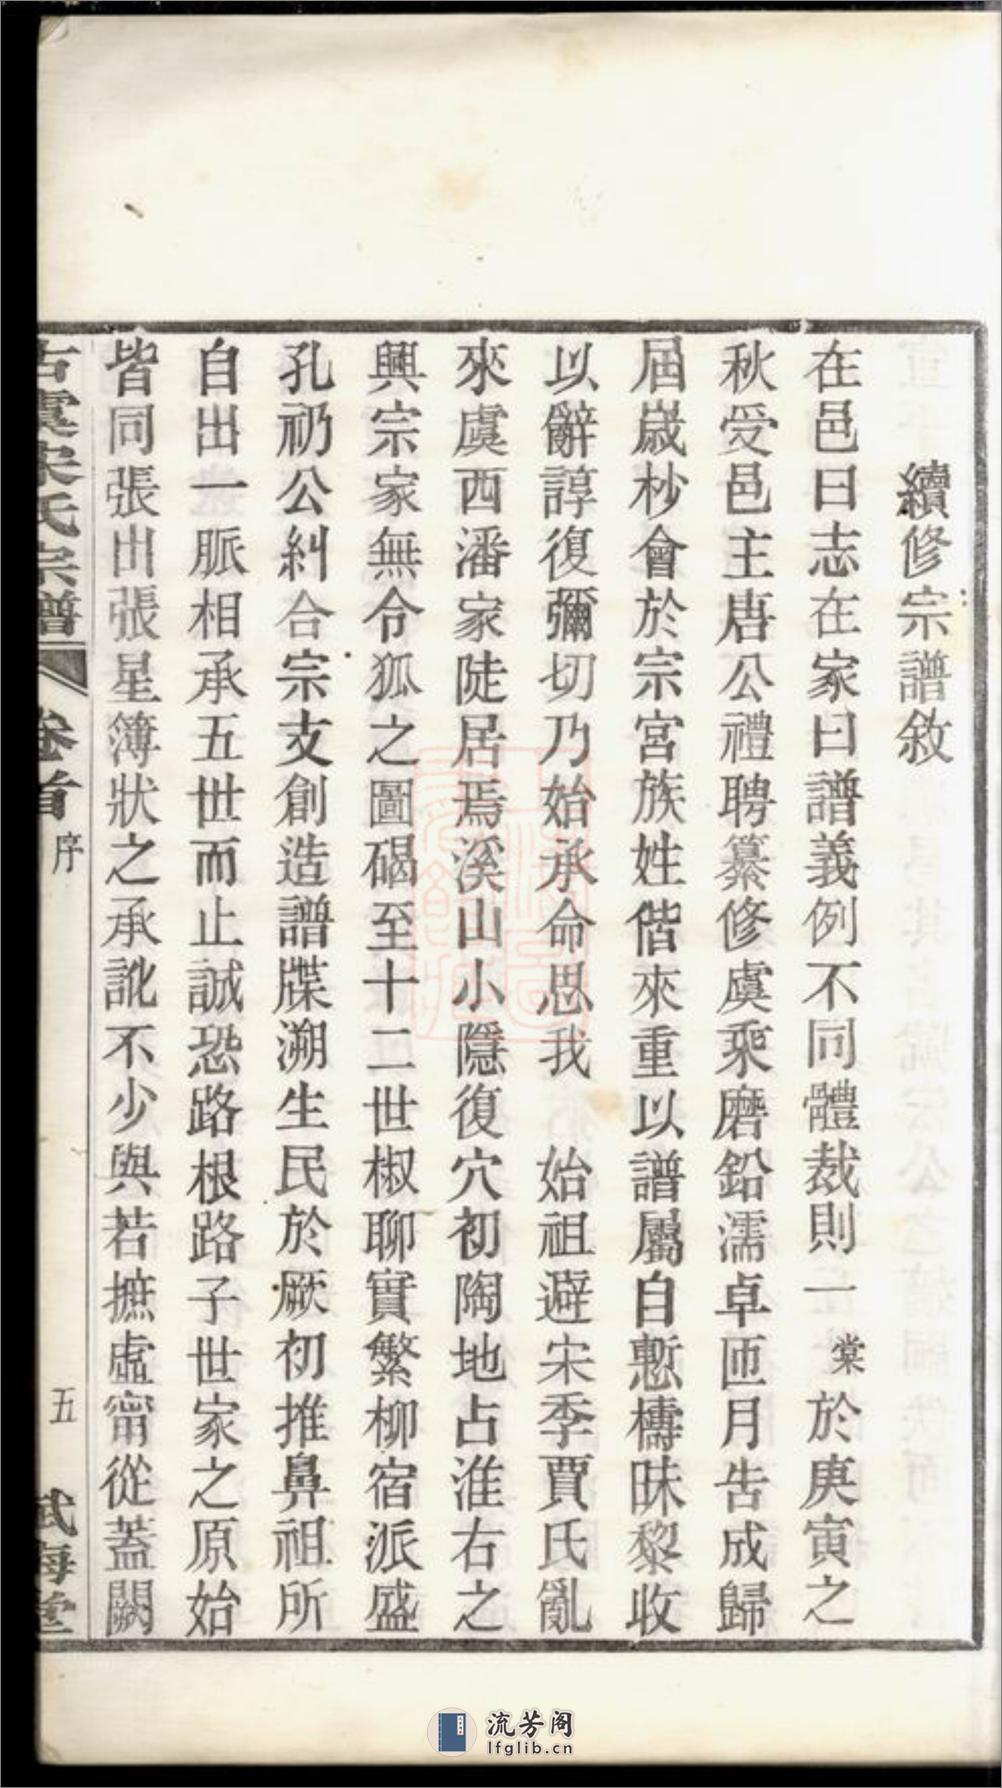 續修宗譜敘
在邑曰志在家曰譜義例不同體裁則一棠於庚寅之
秋受邑主唐公禮聘纂修虞乘磨鉛濡卓匝月告成歸
屆嵗杪會於宗宮族姓偕來重以譜屬自慙檮昧黎收
以辭諄復彌切乃始承命思我 始祖避宋季賈氏亂
來虞西潘家陡居焉溪山小隱復穴初陶地占淮右之
興宗家無令狐之圖碣至十二世椒聊實繁柳宿派盛
孔礽公糾合宗支創造譜牒溯生民於厥初推鼻祖所
自出一脈相承五世而止誠恐路根路子世家之原始
皆同張出張星簿狀之承訛不少與若摭虛甯從蓋闕
古虞宋氏宗譜 卷首 序 五
流芳阁
lfglib.cn